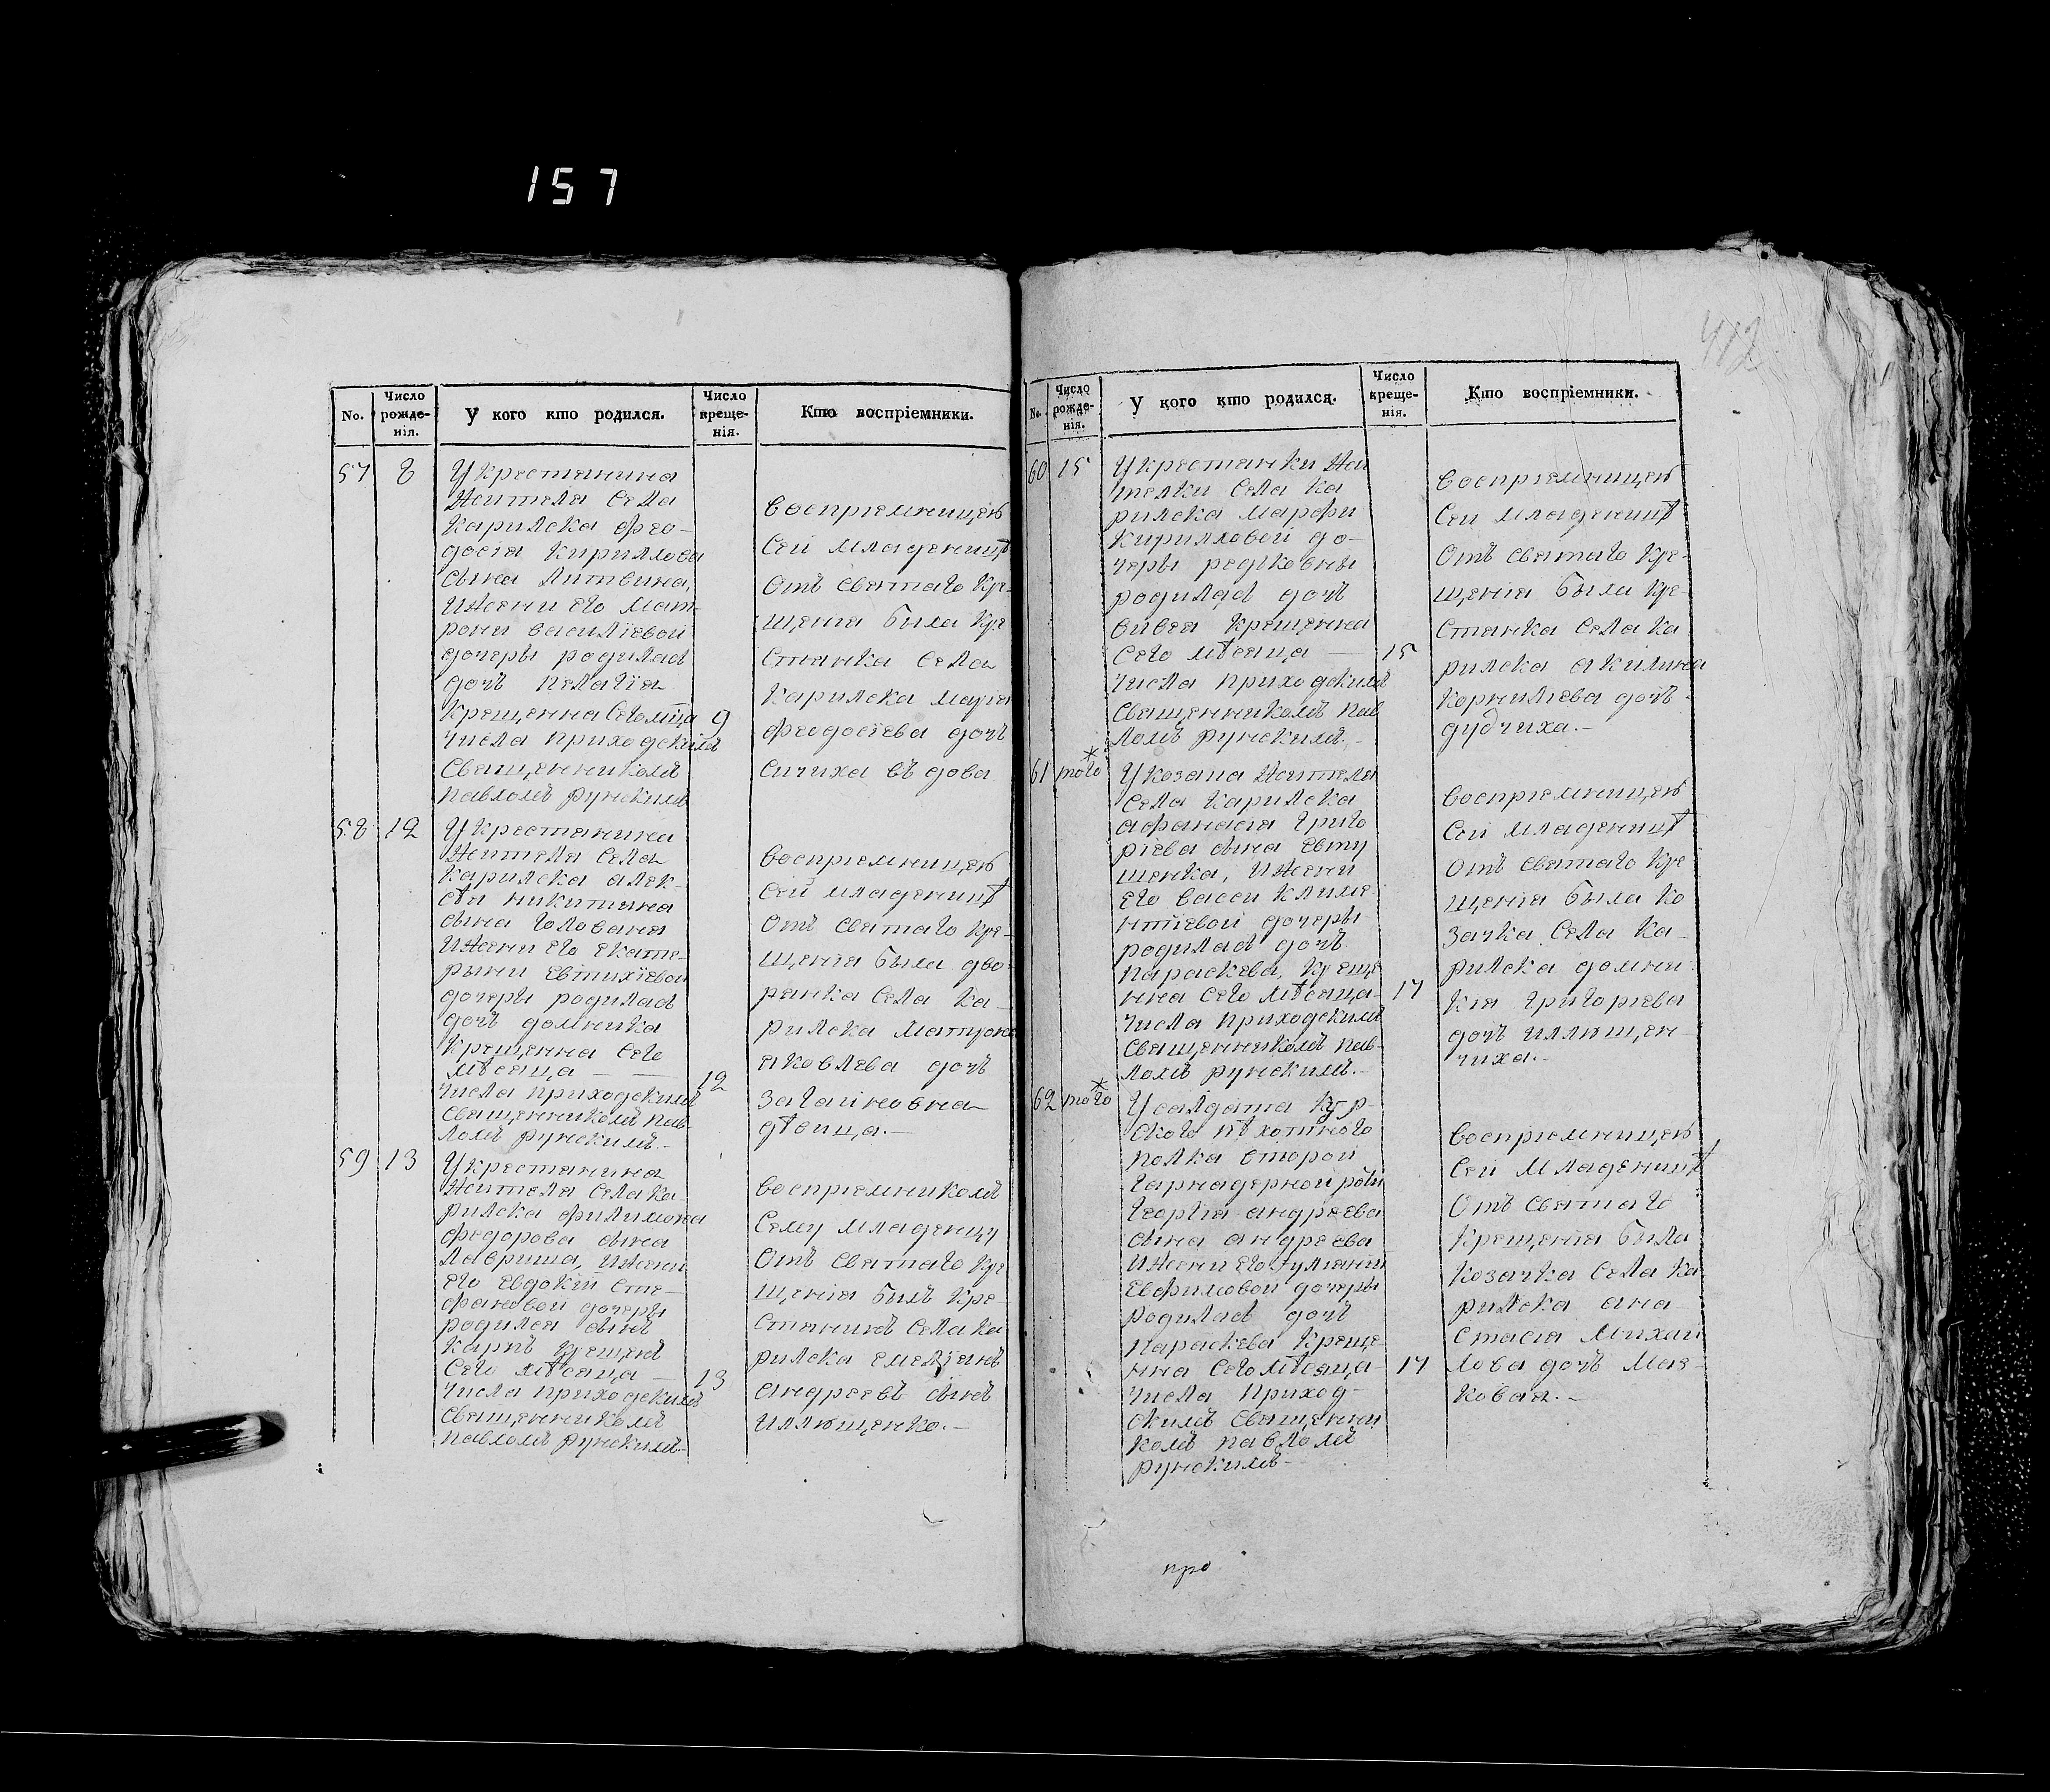 157
412
No.
Число рожде- нія.
У кого кто родился.
Число креще- нія.
Кто воспріемники.
57 8
У крестянина
жителя села
карилска фео-
досія кириллова
сына литвина,
ижени его мат-
рони василїевой
дочеры родилас
дочъ пелагїя
крещенна сегомца 9
числа приходскимъ
священникомъ
павломъ рунскимъ
воспріемницею
сей младеницѣ
отъ святаго кре-
щенія была кре
стянка села
карилска марія
феодосїева дочъ
сичиха въдова
58 12
У крестянина
жителя села
карилска алек-
сѣя никитина
сына голованя
ижени его екате-
рыни евтихїевой
дочеры родилас
дочъ домника
крещенна сего
мѣсяца — — 12
числа приходскимъ
священникомъ пав-
ломъ рунскимъ.-
воспріемницею
сей младеницѣ
отъ святаго кре-
щенія была дво-
рянка села ка-
рилска матрона
яковлева дочъ
загаиновна
дѣвица.—
59 13
У крестянина
жителя села ка-
рилска филимона
федорова сына
лавриша, ижени
его евдокїи сте-
фановой дочеры
родился сынъ
карпъ крещенъ
сего мѣсяца — 13
числа приходскимъ
священникомъ
павломъ рунскимъ.-
воспріемникомъ
сему младенцу
отъ святаго кре
щенія билъ кре-
стянинъ села ка
рилска емелїянъ
андреевъ сынъ
иллюшенко.—
No.
Число рожде- нія.
У кого кто родился.
Число креще- нія.
Кто воспріемники.
60 15
У крестянки жи
телки села ка
рилска марфи
кирилловой до-
черы редковны
родилас дочъ
вивея крещенна
сего мѣсяца — 15
числа приходскимъ
священникомъ пав
ломъ рунскимъ.-
воспріемницею
сей младеницѣ
отъ святаго кре-
щенія была кре-
стянка села ка
рилска акилина
корнилїева дочъ
дудчиха.-
61 того *
У козака жителя
села карилска
афанасія григо
рїева сына евту
шенка, ижени
его васси климе
нтїевой дочеры
родилас дочъ
параскева, креще
нна сего мѣсяца- 17
числа приходскимъ
священникомъ пав-
ломъ рунскимъ.-
воспріемницею
сей младеницѣ
отъ святаго кре
щенія была ко
зачка села ка-
рилска домни
кія григорїева
дочъ иллюшен-
чиха.-
62 того *
У салдата кур-
ского пѣхотного
полка второй
гарнадерной роти
георгія андреева
сына андреева
ижени его улїянии
евфимовой дочеры
родилас дочъ
параскева креще-
нна сего мѣсяца- 17
числа приход-
скимъ священни
комъ павломъ
рунскимъ-
воспріемницею
сей младеницѣ
отъ святаго
крещенія была
козачка села ка
рилска ана
стасія михаи
лова дочъ мая-
ковая.-
про